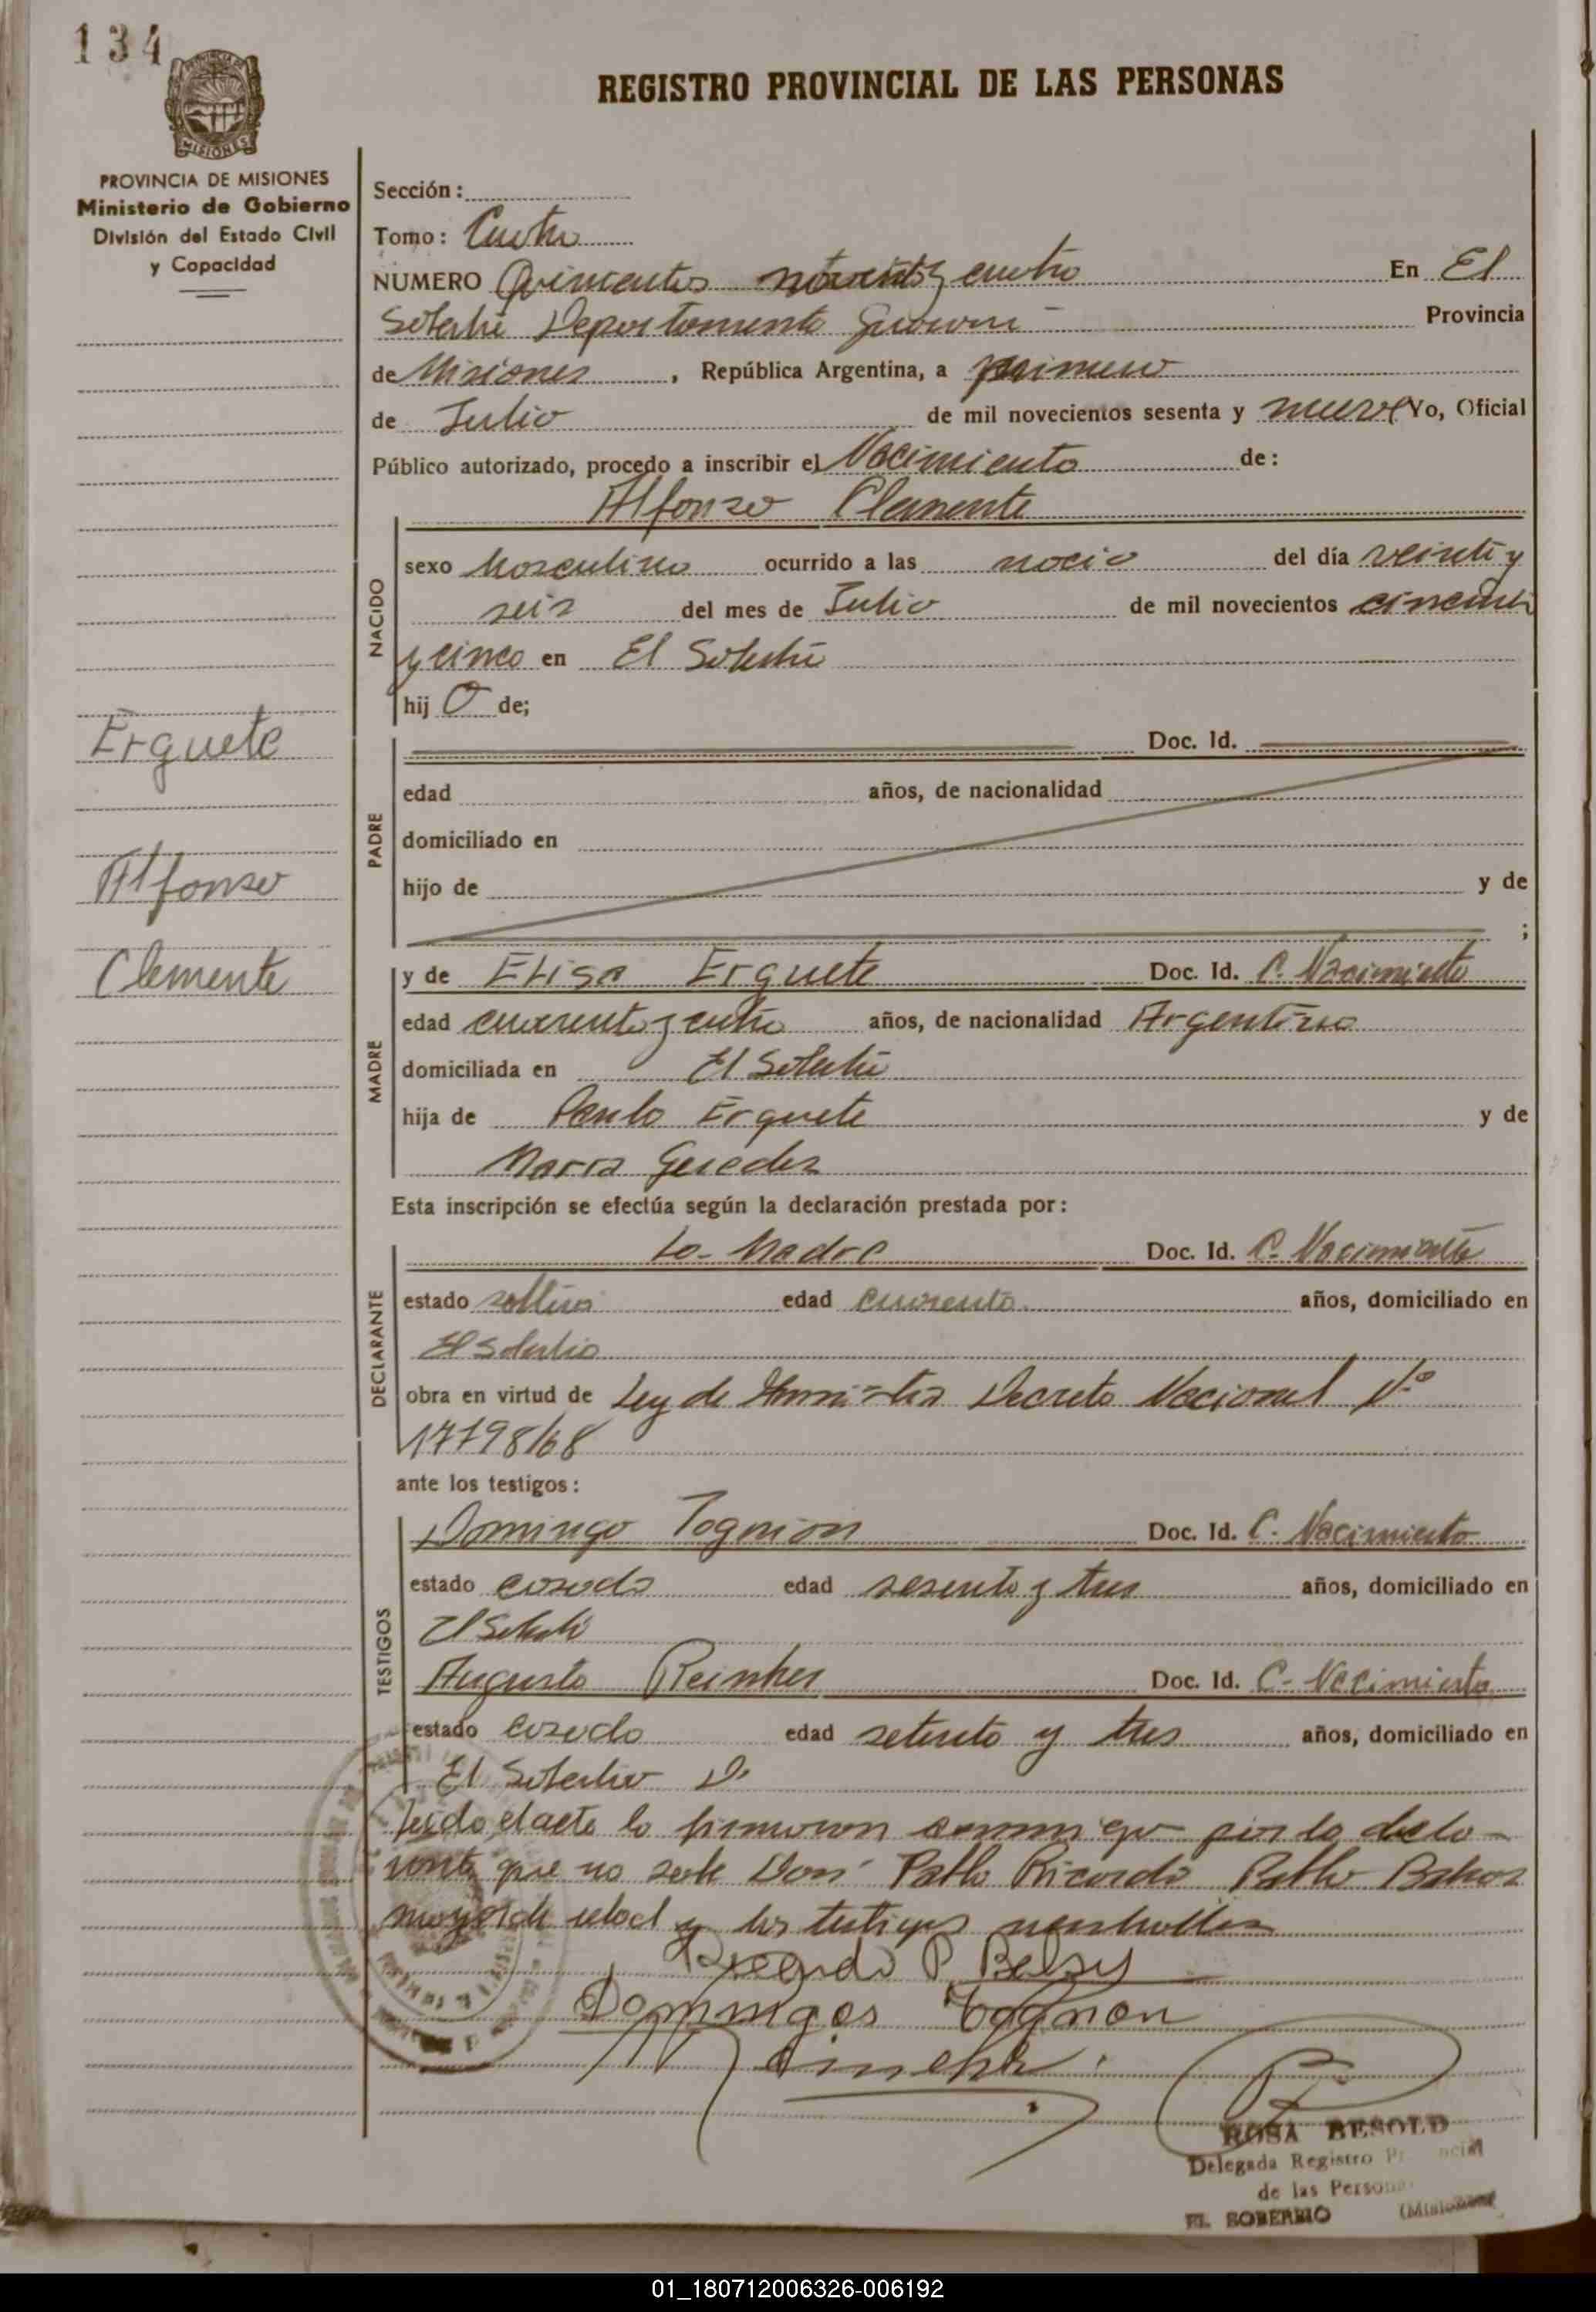 134
MISIONES
PROVINCIA DE MISIONES
Ministerio de Gobierno
División del Estado Civil
y Capacidad
REGISTRO PROVINCIAL DE LAS PERSONAS
Sección:
Tomo: Cuatro
NUMERO Quinientos noventa y cuatro En El
Soberbio Departamento Guarani Provincia
de Misiones, República Argentina, a primero
de Julio de mil novecientos sesenta y nueve Yo, Oficial
Público autorizado, procedo a inscribir el Nacimiento de:
Alfonso Clemente
NACIDO
sexo Masculino ocurrido a las del día veinti y
seis del mes de Julio de mil novecientos
y cinco en El Soberbio
hij o de;
Erquete
Alfonso
Clemente
PADRE
Doc. Id.
edad años, de nacionalidad
domiciliado en
hijo de y de
;
MADRE
y de Elisa Erquete Doc. Id. C. Nacimiento
edad cuarenta y cuatro años, de nacionalidad Argentina
domiciliada en El Soberbio
hija de Paulo Erquete y de
Maria
Esta inscripción se efectúa según la declaración prestada por:
DECLARANTE
La Madre Doc. Id. C. Nacimiento
estado soltera edad cuarenta años, domiciliado en
El Soberbio
obra en virtud de Ley de Amnistia Decreto Nacional N°
17798/68
ante los testigos:
TESTIGOS
Domingo Tognon Doc. Id. C. Nacimiento
estado casado edad sesenta y tres años, domiciliado en
El Soberbio
Augusto Doc. Id. C. Nacimiento
estado casado edad setenta y tres años, domiciliado en
El Soberbio
Leido el acta la firmaron conmigo por la decla-
rante que no sabe Don Pablo Ricardo Pablo
mayor de edad y los testigos
Ricardo P.
Domingos Tognon
ROSA BESOLD
Delegada Registro
de las
EL SOBERBIO (Misiones)
01_180712006326-006192